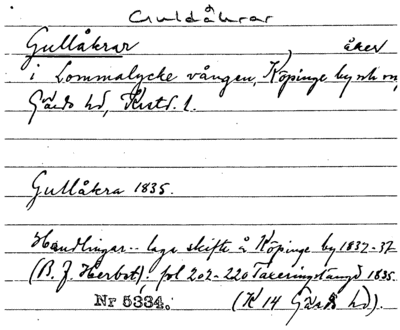 Guldåkrar
Gullåkrar, åker
i Lommalycke vången, Köpinge by
Gärds hd, Krist. l.
Gullåkra 1835.
Handlingar .. laga skifte å Köpinge by 1832-37
(B. J. Herbst); fol 202-220 Taxeringslängd 1835.
Nr 5334. (K 14 Gärds hd).